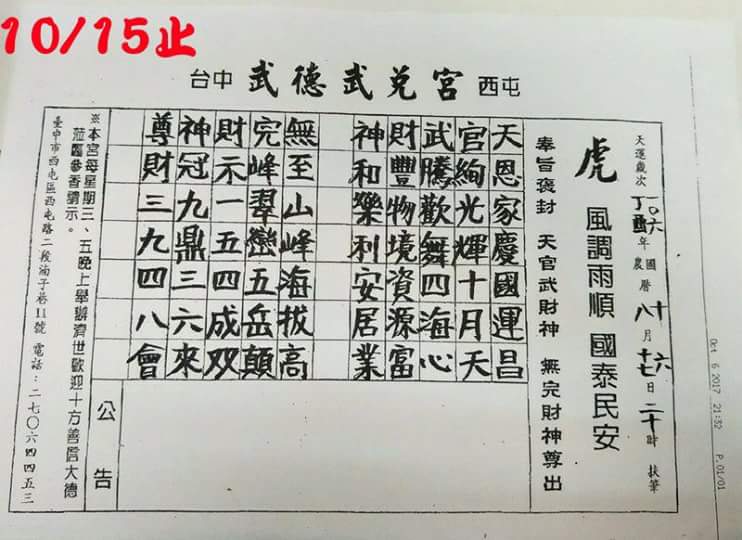 10/15止
台中 武德武兌宮 西屯
Oct 6 2017 21:32 P.01/01
天運歲次 一〇六 丁酉 年 國農曆 十八 月 六 十七 日 二十 時 扶筆
虎 風調雨順 國泰民安
奉旨褒封 天官武財神 無完財神尊出
天恩家慶國運昌
官絢光輝十月天
武騰歡舞四海心
財豐物境資源富
神和樂利安居業
無至山峰海拔高
完峰翠巒五岳顛
財示一五四成双
神冠九鼎三六來
尊財三九四八會
公告
※本宮每星期三、五晚上舉辦濟世歡迎十方善信大德
蒞臨參香請示。
臺中市西屯區西屯路二段湳子巷11號 電話：二七〇六四四五三